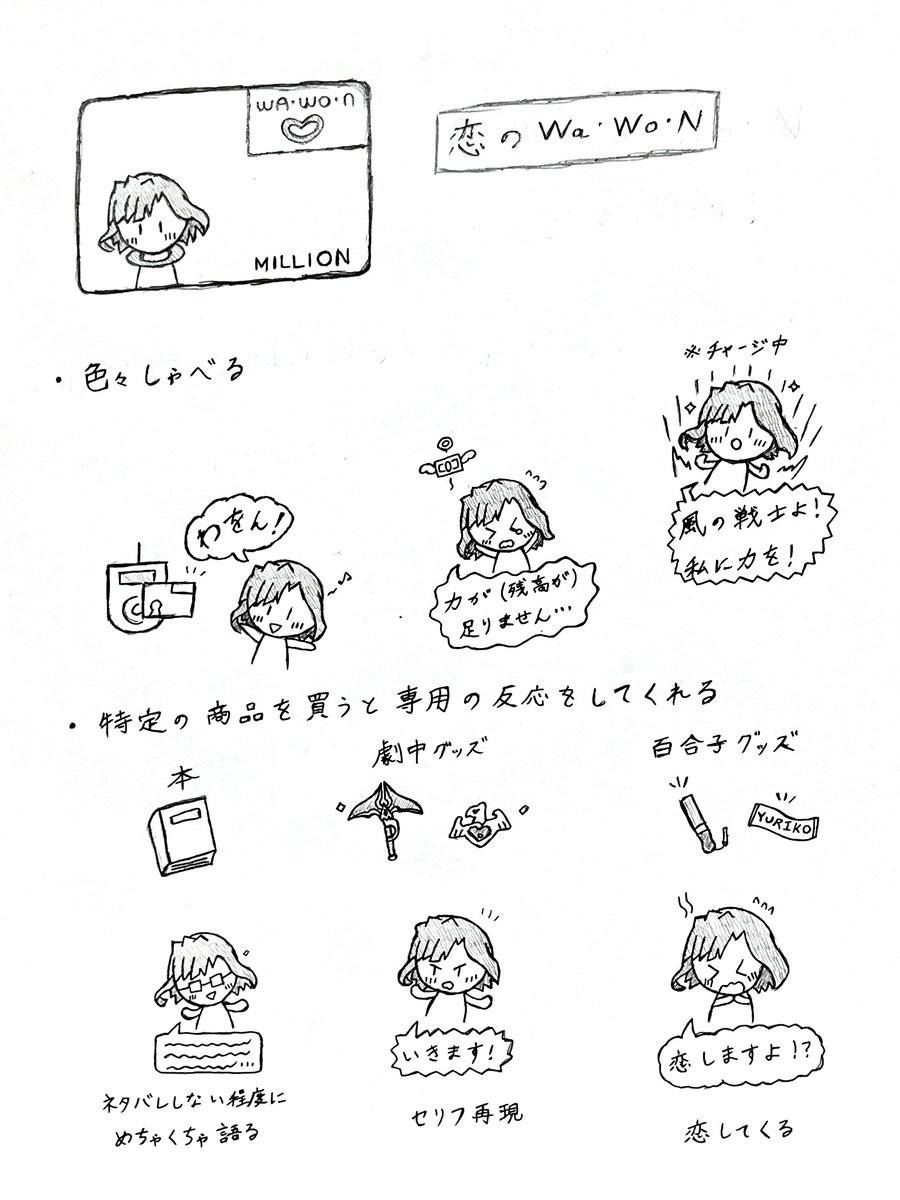 WA・WO・N
MILLION
恋の Wa・Wo・N
・色々しゃべる
※チャージ中
わをん!
力が(残高が)
足りません…
風の戦士よ!
私に力を!
・特定の商品を買うと専用の反応をしてくれる
本
劇中グッズ
百合子グッズ
YURIKO
いきます!
恋しますよ!?
ネタバレしない程度に
めちゃくちゃ語る
セリフ再現
恋してくる